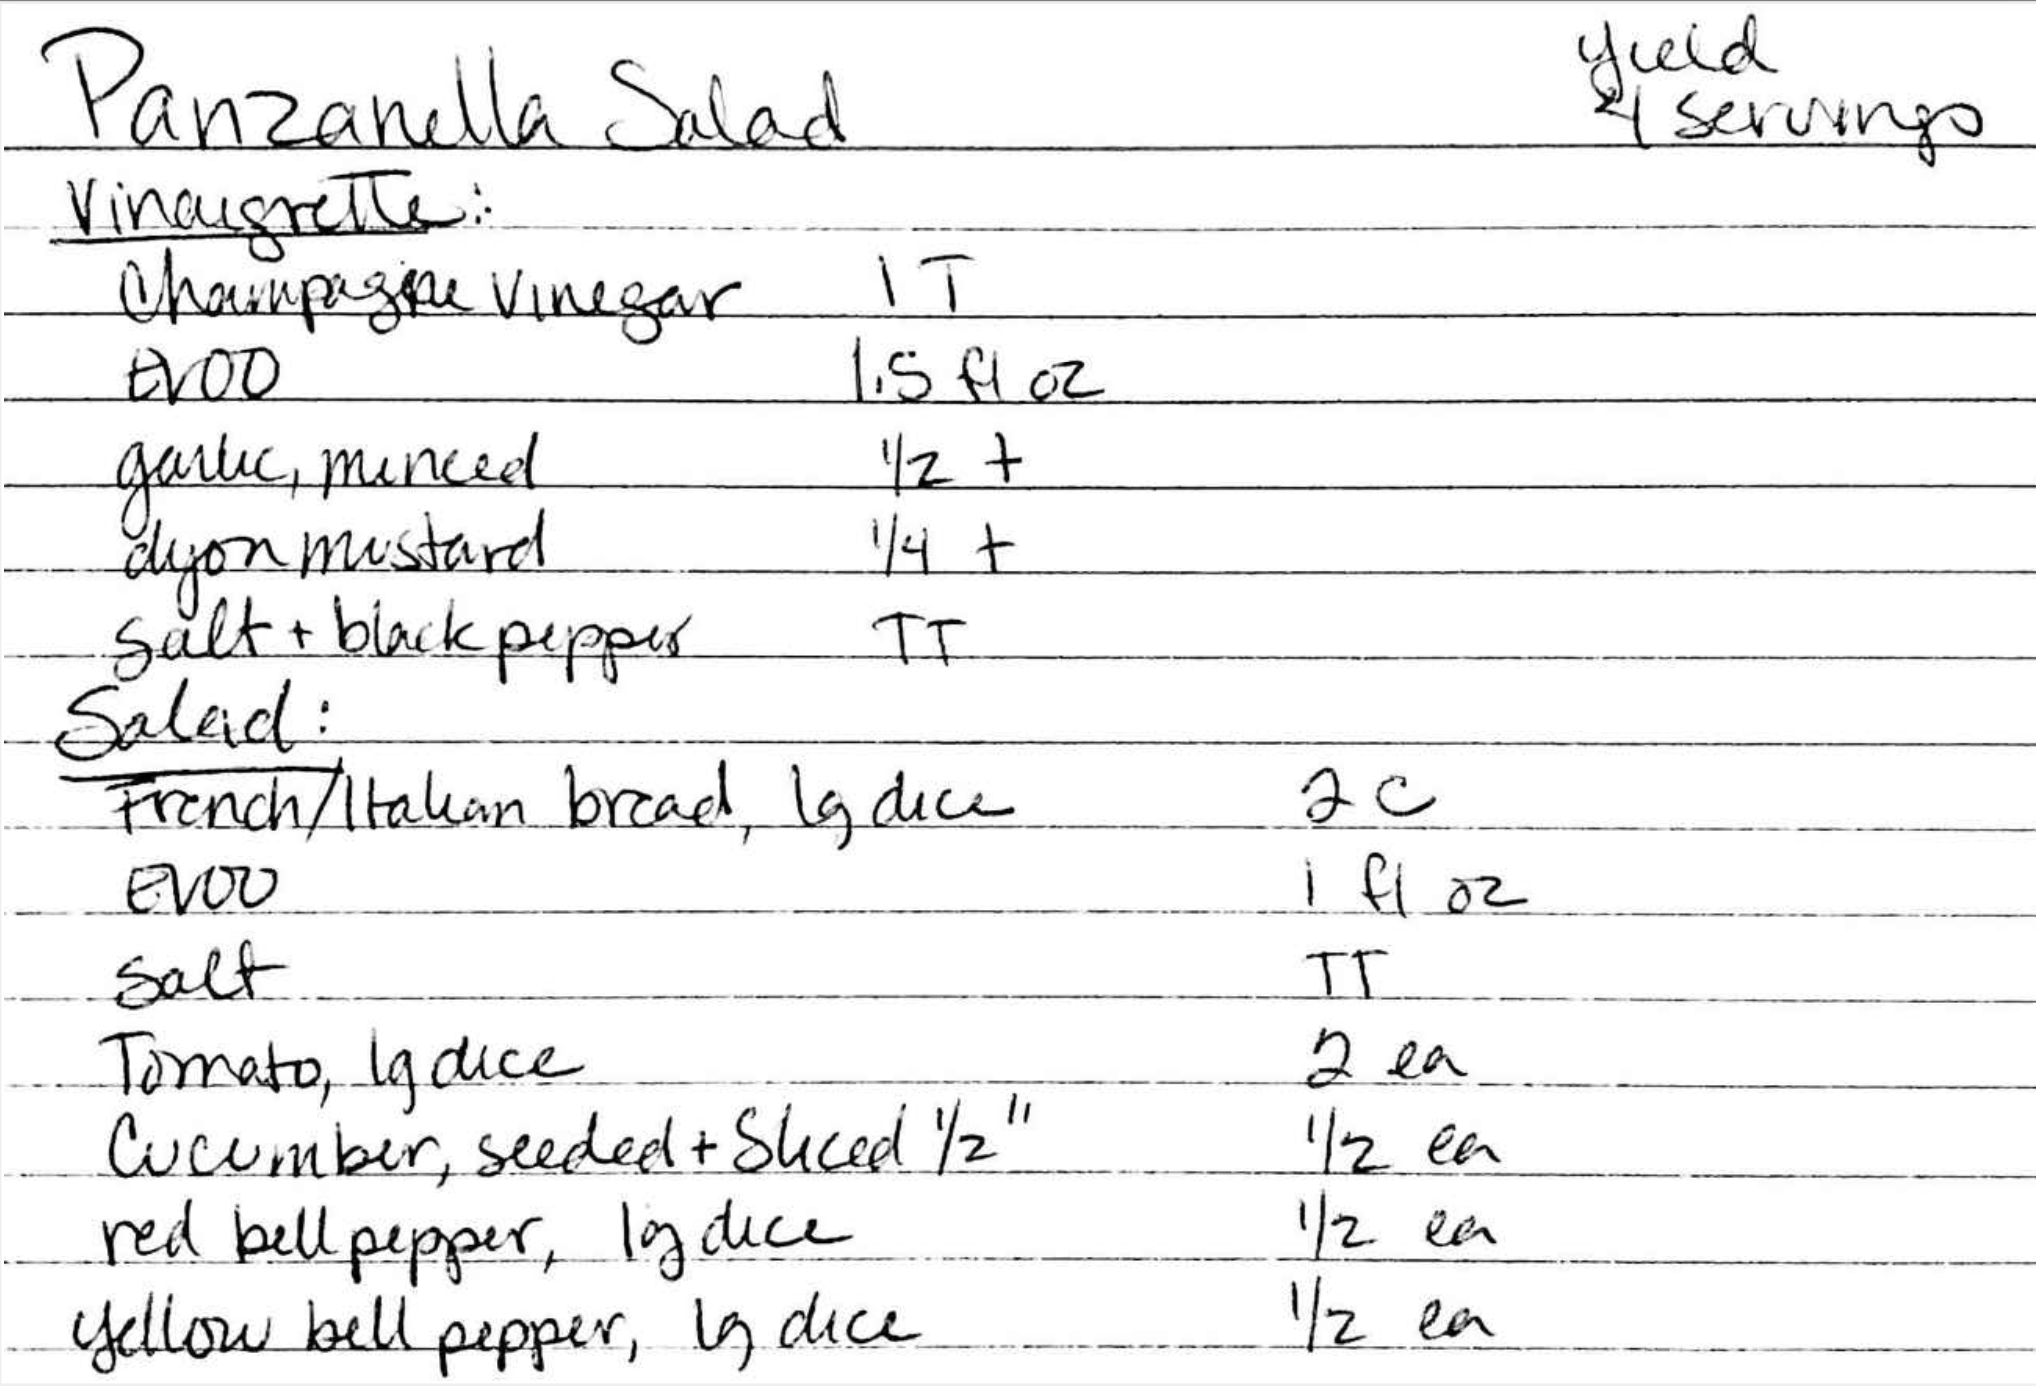 Panzanella Salad
yield
4 servings
Vinaigrette:
Champagne vinegar 1 T
EVOO 1.5 fl oz
garlic, minced 1/2 t
dijon mustard 1/4 t
salt + black pepper TT
Salad:
French/Italian bread, lg dice 2 C
EVOO 1 fl oz
Salt TT
Tomato, lg dice 2 ea
Cucumber, seeded + Sliced 1/2" 1/2 ea
red bell pepper, lg dice 1/2 ea
yellow bell pepper, lg dice 1/2 ea